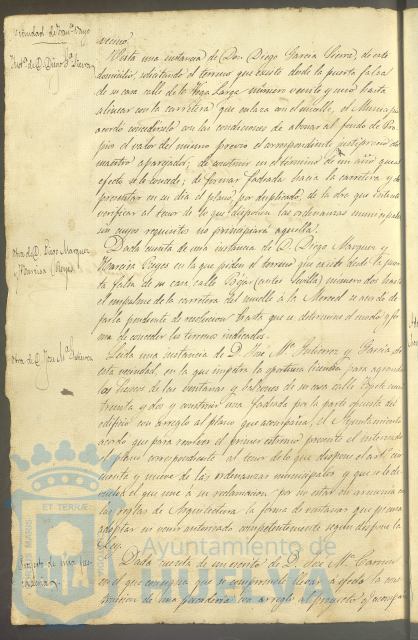 vecino.
Vista una instancia de Don Diego Garcia Sierra, de este
domicilio, solicitando el terreno que existe desde la puerta falsa
de su casa calle de la Vega Larga número veinte y uno hasta
alinear con la carretera que enlaza con el muelle, el Municipio
acordó concedérselo con las condiciones de abonar al fondo de Pro
pios el valor del mismo previo el correspondiente justiprecio del
maestro aparejador; de construir en el término de un año que al
efecto se le concede; de formar fachada hacia la carretera y de
presentar en su dia el plano, por duplicado, de la obra que intenta
verificar al tenor de lo que disponen las ordenanzas municipales
sin cuyos requisitos no principiará aquella.
Dada cuenta de una instancia de D. Diego Marquez y
Reyes en la que piden el terreno que existe desde la puer
ta falsa de su casa calle Bejar (antes Sevilla) número dos hasta
el empalme de la carretera del muelle a la Merced se acordó de
jarla pendiente de resolucion hasta que se determine el modo y for
ma de conceder los terrenos indicados.
Leida una instancia de D. José Mª Gutierrez y Garcia de
esta vecindad, en la que impetra la oportuna licencia para agrandar
los huecos de las ventanas y balcones de su casa calle
treinta y dos y construir una fachada por la parte opuesta del
edificio con arreglo al plano que acompaña; el Ayuntamiento
acordó que para resolver el primer estremo presente el interesado
el plano correspondiente al tenor de lo que dispone el artº
cuenta y nueve de las ordenanzas municipales y que se le de
vuelva el que une a su reclamacion por no estar en armonía con
las reglas de Arquitectura la forma de ventanas que piensa
adoptar ni venir autorizado competentemente segun dispone la
Ley.
Dada cuenta de un escrito de D. José M. Carrion
en el que consigna que se compromete llevar a efecto la cons
truccion de una con arreglo al proyecto que acompa
Instª de D. Diego Gª Sierra
Otra de D. Diego Marquez
y Reyes
Otra de D. José Mª Gutierrez
ET TERRÆ
Ayuntamiento de
HUELVA